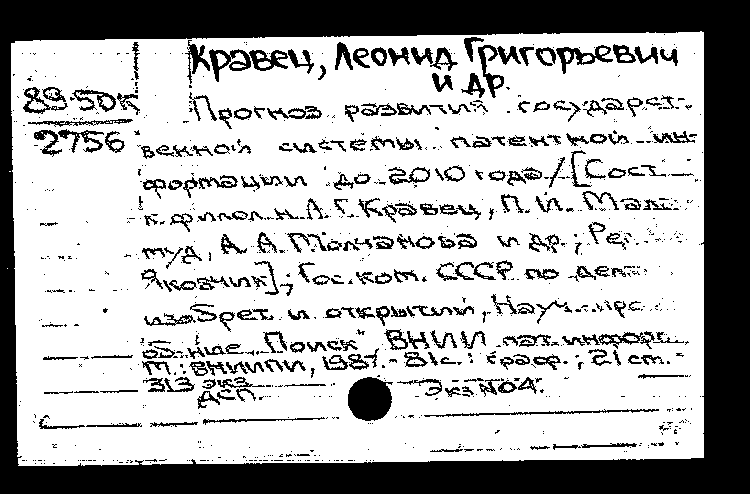 Кравец, Леонид Григорьевич
и др.
89-5DК
2756
Прогноз развития государст-
венной системы патентной ин-
формации до 2010 года / [Сост.
к.филол.н. Л. Г. Кравец, П. И.
муд, А. А. Молчанова и др.;
Яковчик]; Гос. ком. СССР по дел.
изобрет. и открытий, Науч.-
об-ние "Поиск", ВНИИ пат. информ.
М.: ВНИИПИ, 1987. - 81с.: граф.; 21 см. -
313 экз.
ДСП. Экз №04.